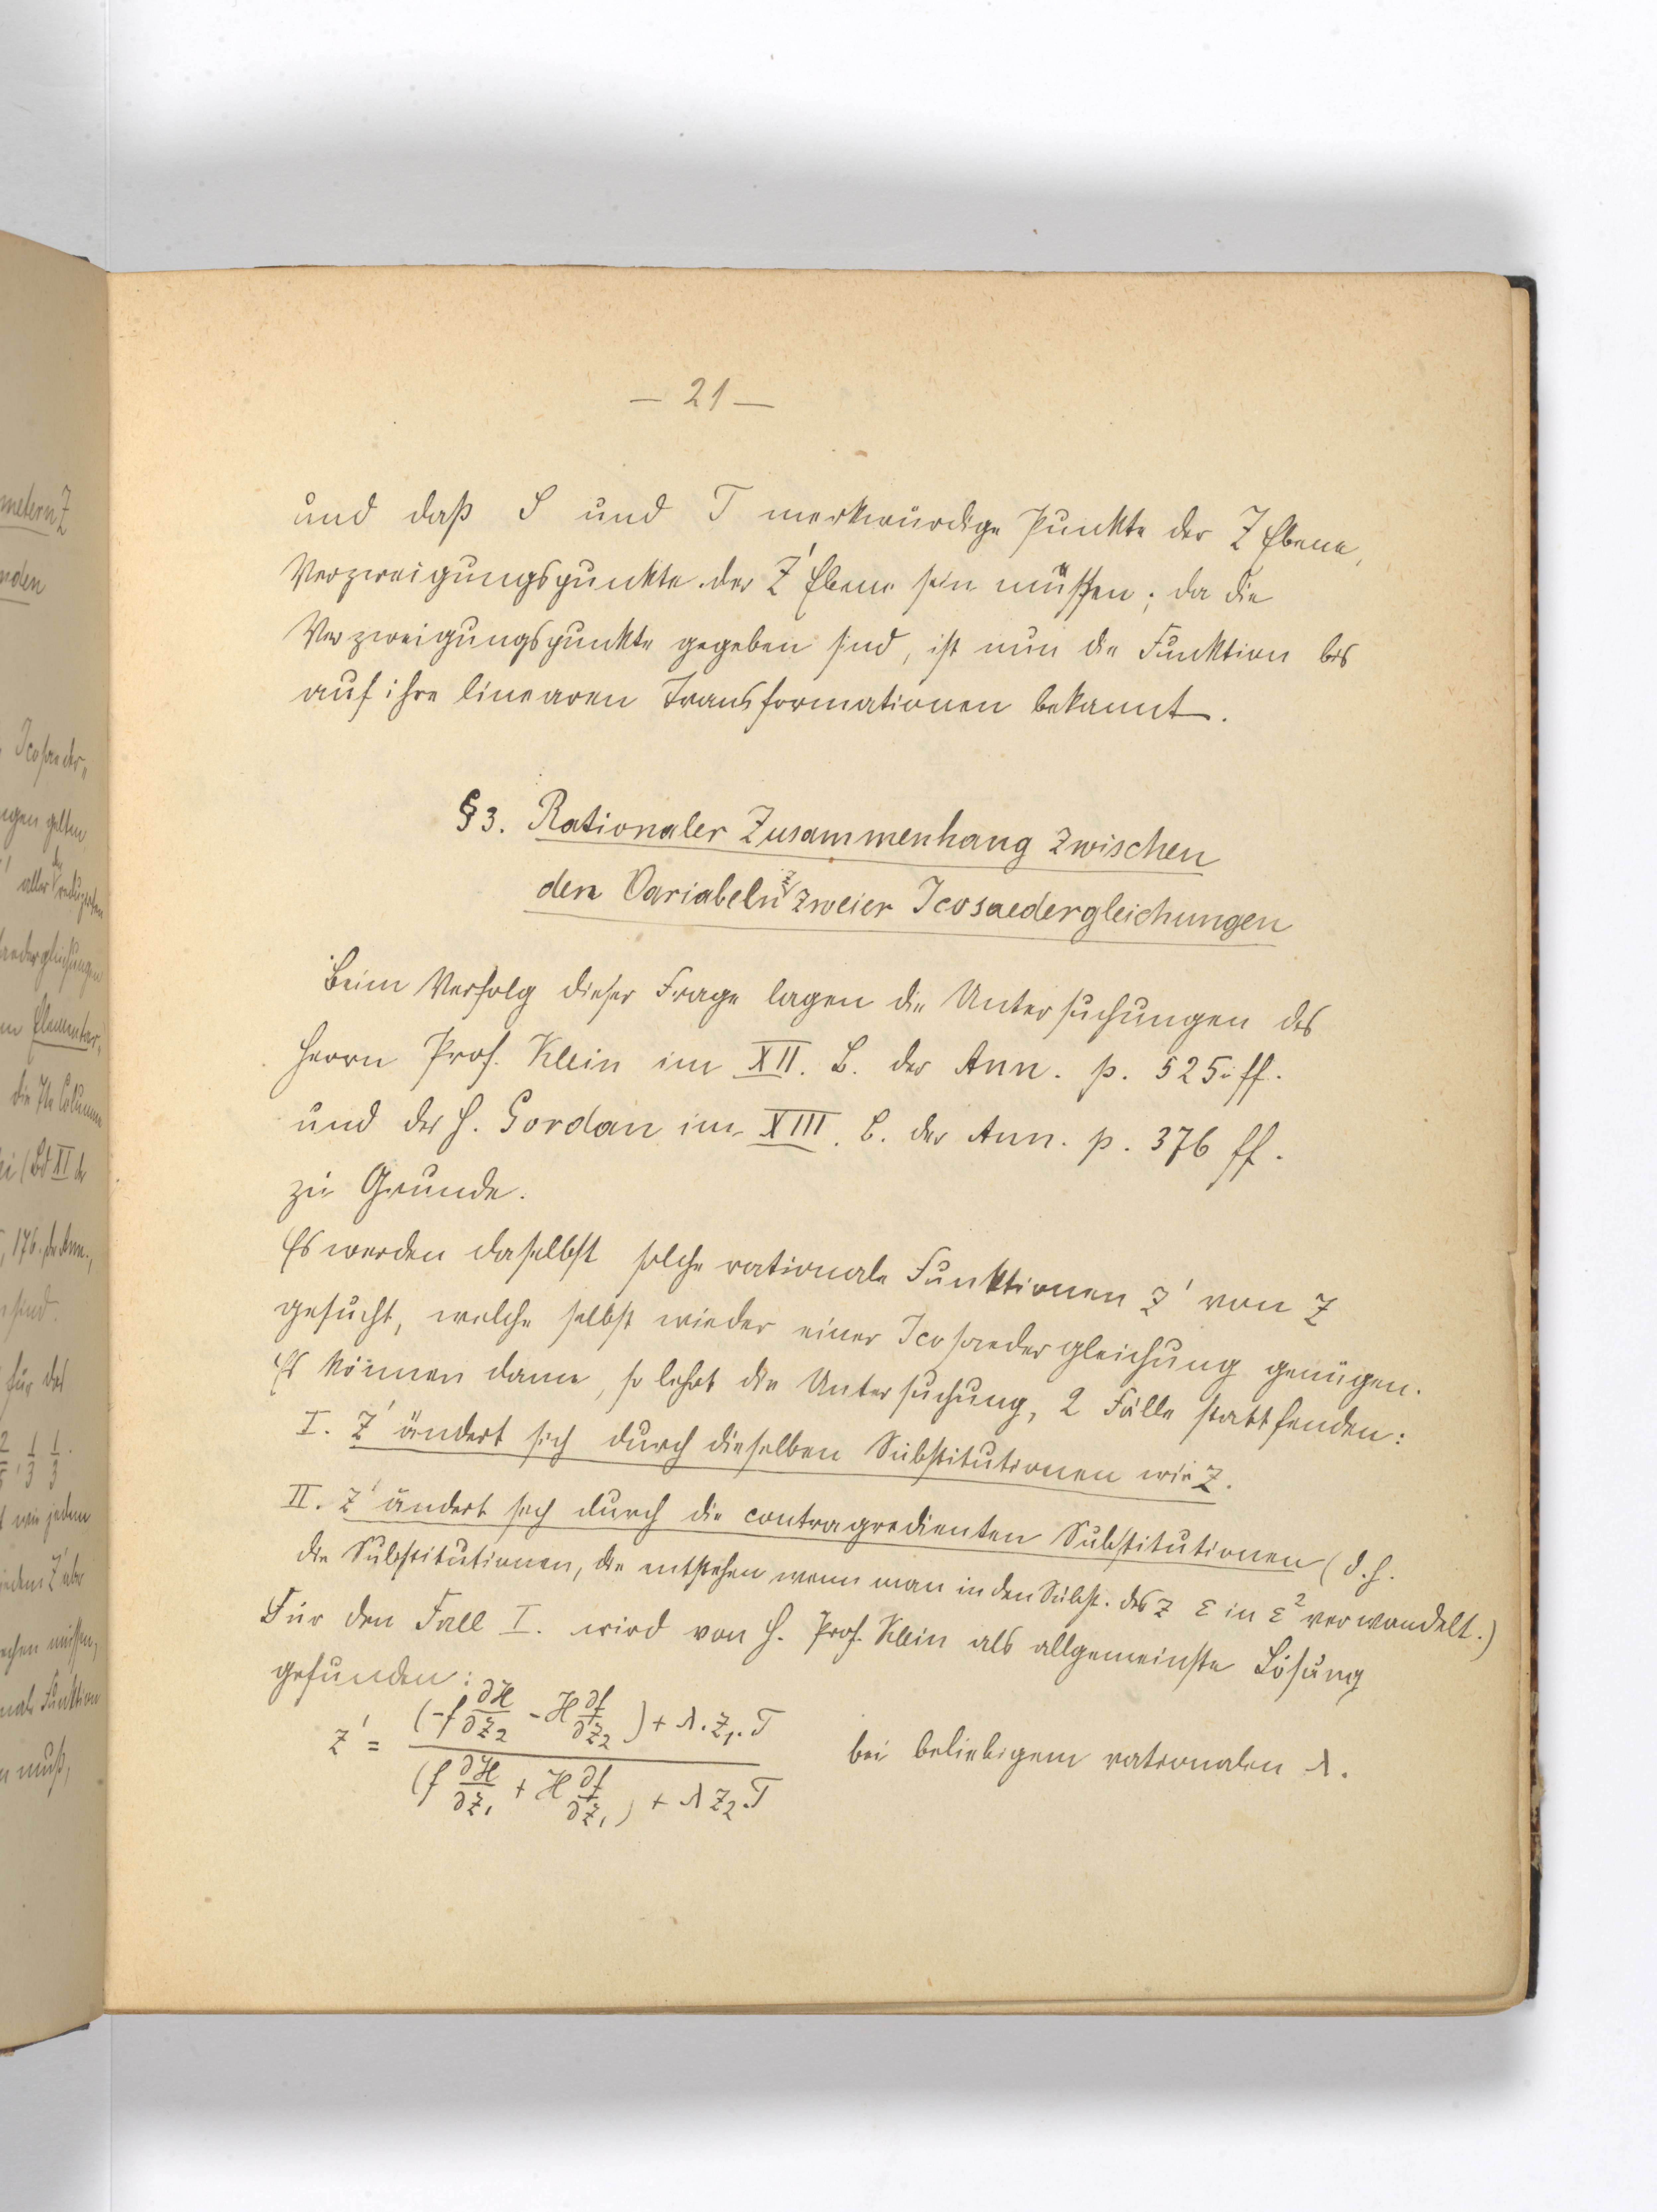 — 21 —
und daß S und T merkwürdige Punkte der Z Ebene,
Verzweigungspunkte der Z' Ebene sein müssen; da die
Verzweigungspunkte gegeben sind, ist nun die Funktion bis
auf ihre linearen Transformationen bekannt.
§3. Rationaler Zusammenhang zwischen
den Variabeln z zweier Icosaedergleichungen
Beim Verfolg dieser Frage lagen die Untersuchungen des
Herrn Prof. Klein im XII. B. der Ann. p. 525 ff.
und des H. Gordan im XIII. B. der Ann. p. 376 ff.
zu Grunde.
Es werden daselbst solche rationale Funktionen z' von z
gesucht, welche selbst wieder einer Icosaedergleichung genügen.
Es können dann, so lehrt die Untersuchung, 2 Fälle stattfinden:
I. z' ändert sich durch dieselben Substitutionen wie z.
II. z' ändert sich durch die contragredienten Substitutionen (d.h.
die Substitutionen, die entstehen wenn man in den Subst. des z ε in ε² verwandelt.)
Für den Fall I. wird von H. Prof. Klein als allgemeinste Lösung
gefunden:
z' = (-f ∂H/∂z₂ - H ∂f/∂z₂) + λ. z₁. T / (f ∂H/∂z₁ + H ∂f/∂z₁) + λ z₂. T bei beliebigem rationalen λ.
metern Z
nden
Icosaeder-
ngen gelten
aller der reduzirten
aedergleichungen
Elementar-
die 7te Columne
(Bd XI der
176. der Ann.,
sind.
für das
1/3 1/3.
wie jedem
jedem Z' aber
echen müssen,
nale Funktion
muß,